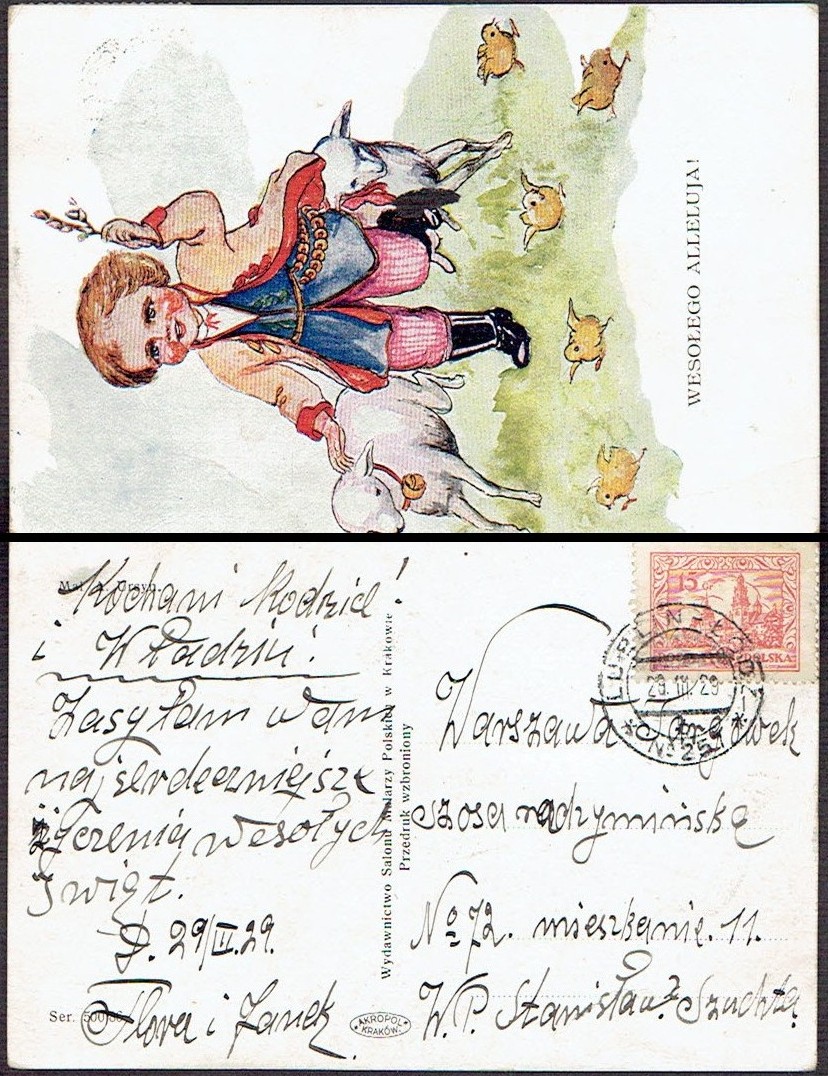 WESOŁEGO ALLELUJA!
Mal. A. Ursyn.
Kochani Rodzice!
i Władziu!
Zasyłam wam
najserdeczniejsze
życzenia wesołych
Świąt.
D. 29/III.29.
Flora i Janek.
Ser.
Wydawnictwo Salonu Malarzy Polskich w Krakowie
Przedruk wzbroniony
AKROPOL
KRAKÓW.
15 GR
POLSKA
LUBLIN-ŁÓDŹ
29.III.29
Nº 251
Warszawa Targówek
szosa radzymińska
Nº 72. mieszkanie. 11.
W.P. Stanisław. Szuchta.